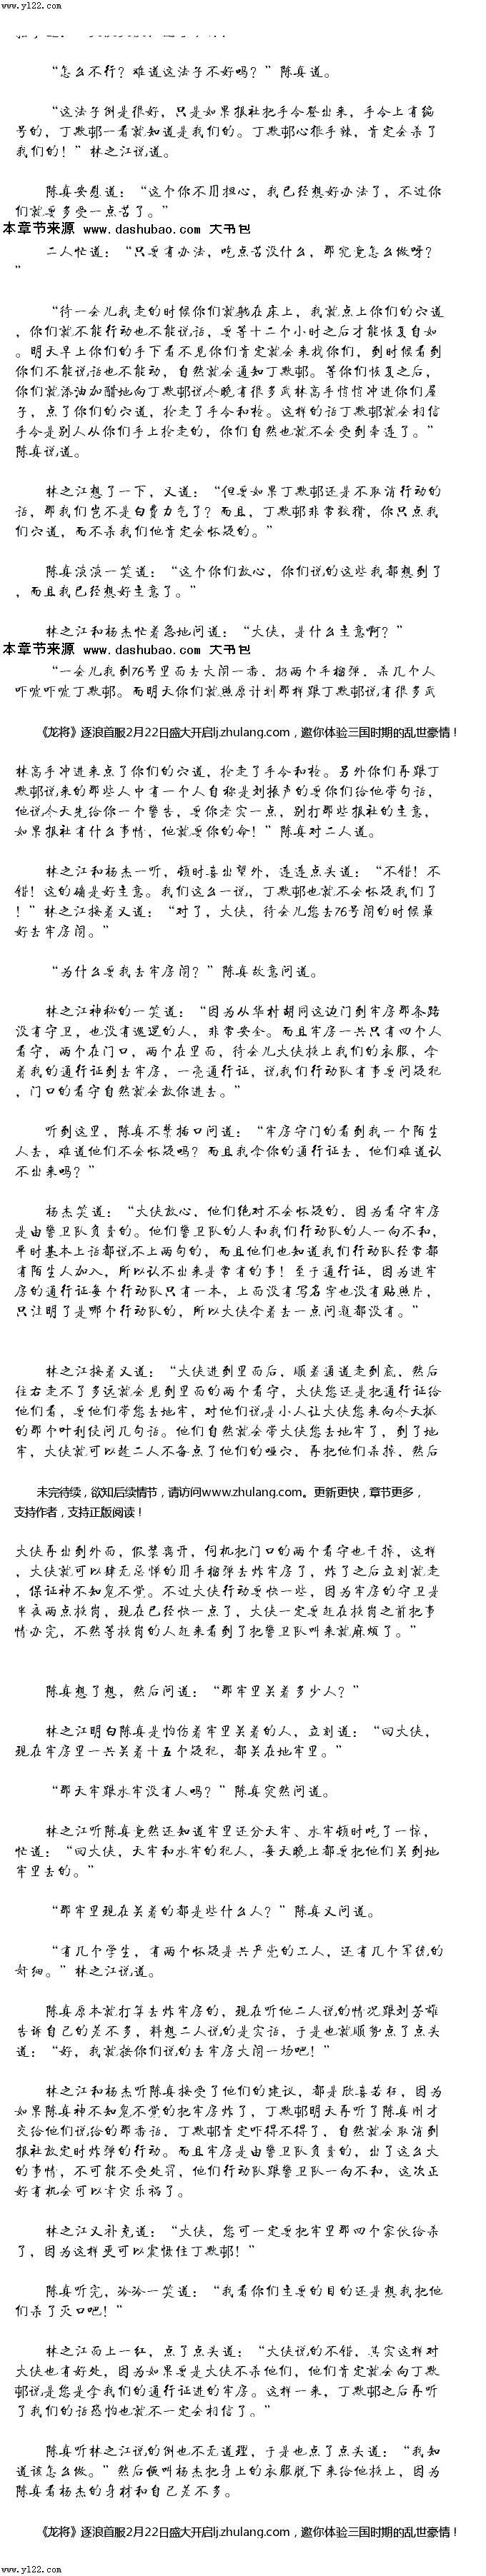 www.yl22.com
“怎么不行？难道这法子不好吗？”陈真道。
“这法子倒是很好，只是如果报社把手令登出来，手令上有编
号的，丁默邨一看就知道是我们的。丁默邨心狠手辣，肯定会杀了
我们的！”林之江说道。
陈真安慰道：“这个你不用担心，我已经想好办法了，不过你
们就要多受一点苦了。”
本章节来源 www.dashubao.com 大书包
二人忙道：“只要有办法，吃点苦没什么，那究竟怎么做呀？
”
“待一会儿我走的时候你们就躺在床上，我就点上你们的穴道
，你们就不能行动也不能说话，要等十二个小时之后才能恢复自如
。明天早上你们的手下看不见你们肯定就会来找你们，到时候看到
你们不能说话也不能动，自然就会通知丁默邨。等你们恢复之后，
你们就添油加醋地向丁默邨说今晚有很多武林高手悄悄冲进你们屋
子，点了你们的穴道，抢走了手令和枪。这样的话丁默邨就会相信
手令是别人从你们手上抢走的，你们自然也就不会受到牵连了。”
陈真说道。
林之江想了一下，又道：“但要如果丁默邨还是不取消行动的
话，那我们岂不是白费力气了？而且，丁默邨非常狡猾，你只点我
们穴道，而不杀我们他肯定会怀疑的。”
陈真淡淡一笑道：“这个你们放心，你们说的这些我都想到了
，而且我已经想好主意了。”
林之江和杨杰忙着急地问道：“大侠，是什么主意啊？”
本章节来源 www.dashubao.com 大书包
“一会儿我到76号里面去大闹一番，扔两个手榴弹、杀几个人
吓唬吓唬丁默邨。而明天你们就照原计划那样跟丁默邨说有很多武
《龙将》逐浪首服2月22日盛大开启lj.zhulang.com，邀你体验三国时期的乱世豪情！
林高手冲进来点了你们的穴道，抢走了手令和枪。另外你们再跟丁
默邨说来的那些人中有一个人自称是刘振声的要你们给他带句话，
他说今天先给你一个警告，要你老实一点，别打那些报社的主意，
如果报社有什么事情，他就要你的命！”陈真对二人道。
林之江和杨杰一听，顿时喜出望外，连连点头道：“不错！不
错！这的确是好主意。我们这么一说，丁默邨也就不会怀疑我们了
！”林之江接着又道：“对了，大侠，待会儿您去76号闹的时候最
好去牢房闹。”
“为什么要我去牢房闹？”陈真故意问道。
林之江神秘的一笑道：“因为从华村胡同这边门到牢房那条路
没有守卫，也没有巡逻的人，非常安全。而且牢房一共只有四个人
看守，两个在门口，两个在里面，待会儿大侠换上我们的衣服，拿
着我的通行证到去牢房，一亮通行证，说我们行动队有事要问疑犯
，门口的看守自然就会放你进去。”
听到这里，陈真不禁插口问道：“牢房守门的看到我一个陌生
人去，难道他们不会怀疑吗？而且我拿你的通行证去，他们难道认
不出来吗？”
杨杰笑道：“大侠放心，他们绝对不会怀疑的，因为看守牢房
是由警卫队负责的。他们警卫队的人和我们行动队的人一向不和，
平时基本上话都说不上两句的，而且他们也知道我们行动队经常都
有陌生人加入，所以认不出来是常有的事！至于通行证，因为进牢
房的通行证每个行动队只有一本，上面没有写名字也没有贴照片，
只注明了是哪个行动队的，所以大侠拿着去一点问题都没有。”
林之江接着又道：“大侠进到里面后，顺着通道走到底，然后
往右走不了多远就会见到里面的两个看守，大侠您还是把通行证给
他们看，要他们带您去地牢，对他们说是小人让大侠您来向今天抓
的那个叶利使问几句话。他们自然就会带大侠您去地牢了，到了地
牢，大侠就可以趁二人不备点了他们的哑穴，再把他们杀掉，然后
未完待续，欲知后续情节，请访问www.zhulang.com。更新更快，章节更多，
支持作者，支持正版阅读！
大侠再出到外面，假装离开，伺机把门口的两个看守也干掉，这样
，大侠就可以肆无忌惮的用手榴弹去炸牢房了，炸了之后立刻就走
，保证神不知鬼不觉。不过大侠行动要快一些，因为牢房的守卫是
半夜两点换岗，现在已经快一点了，大侠一定要赶在换岗之前把事
情办完，不然等换岗的人赶来看到了把警卫队叫来就麻烦了。”
陈真想了想，然后问道：“那牢里关着多少人？”
林之江明白陈真是怕伤着牢里关着的人，立刻道：“回大侠，
现在牢房里一共关着十五个疑犯，都关在地牢里。”
“那天牢跟水牢没有人吗？”陈真突然问道。
林之江听陈真竟然还知道牢里还分天牢、水牢顿时吃了一惊，
忙道：“回大侠，天牢和水牢的犯人，每天晚上都要把他们关到地
牢里去的。”
“那牢里现在关着的都是些什么人？”陈真又问道。
“有几个学生，有两个怀疑是共产党的工人，还有几个军统的
奸细。”林之江说道。
陈真原本就打算去炸牢房的，现在听他二人说的情况跟刘芳雄
告诉自己的差不多，料想二人说的是实话，于是也就顺势点了点头
道：“好，我就按你们说的去牢房大闹一场吧！”
林之江和杨杰听陈真接受了他们的建议，都是欣喜若狂，因为
如果陈真神不知鬼不觉的把牢房炸了，丁默邨明天再听了陈真刚才
交给他们说给的那番话，丁默邨肯定吓得不得了，自然就会取消到
报社放定时炸弹的行动。而且牢房是由警卫队负责的，出了这么大
的事情，不可能不受处罚，他们行动队跟警卫队一向不和，这次正
好有机会可以幸灾乐祸了。
林之江又补充道：“大侠，您可一定要把牢里那四个家伙给杀
了，因为这样更可以震慑住丁默邨！”
陈真听完，冷冷一笑道：“我看你们主要的目的还是想我把他
们杀了灭口吧！”
林之江面上一红，点了点头道：“大侠说的不错，其实这样对
大侠也有好处，因为如果要是大侠不杀他们，他们肯定就会向丁默
邨说是您是拿我们的通行证进的牢房。这样一来，丁默邨之后再听
了我们的话恐怕也就不一定会相信了。”
陈真听林之江说的倒也不无道理，于是也点了点头道：“我知
道该怎么做。”然后便叫杨杰把身上的衣服脱下来给他换上，因为
陈真看杨杰的身材和自己差不多。
《龙将》逐浪首服2月22日盛大开启lj.zhulang.com，邀你体验三国时期的乱世豪情！
www.yl22.com